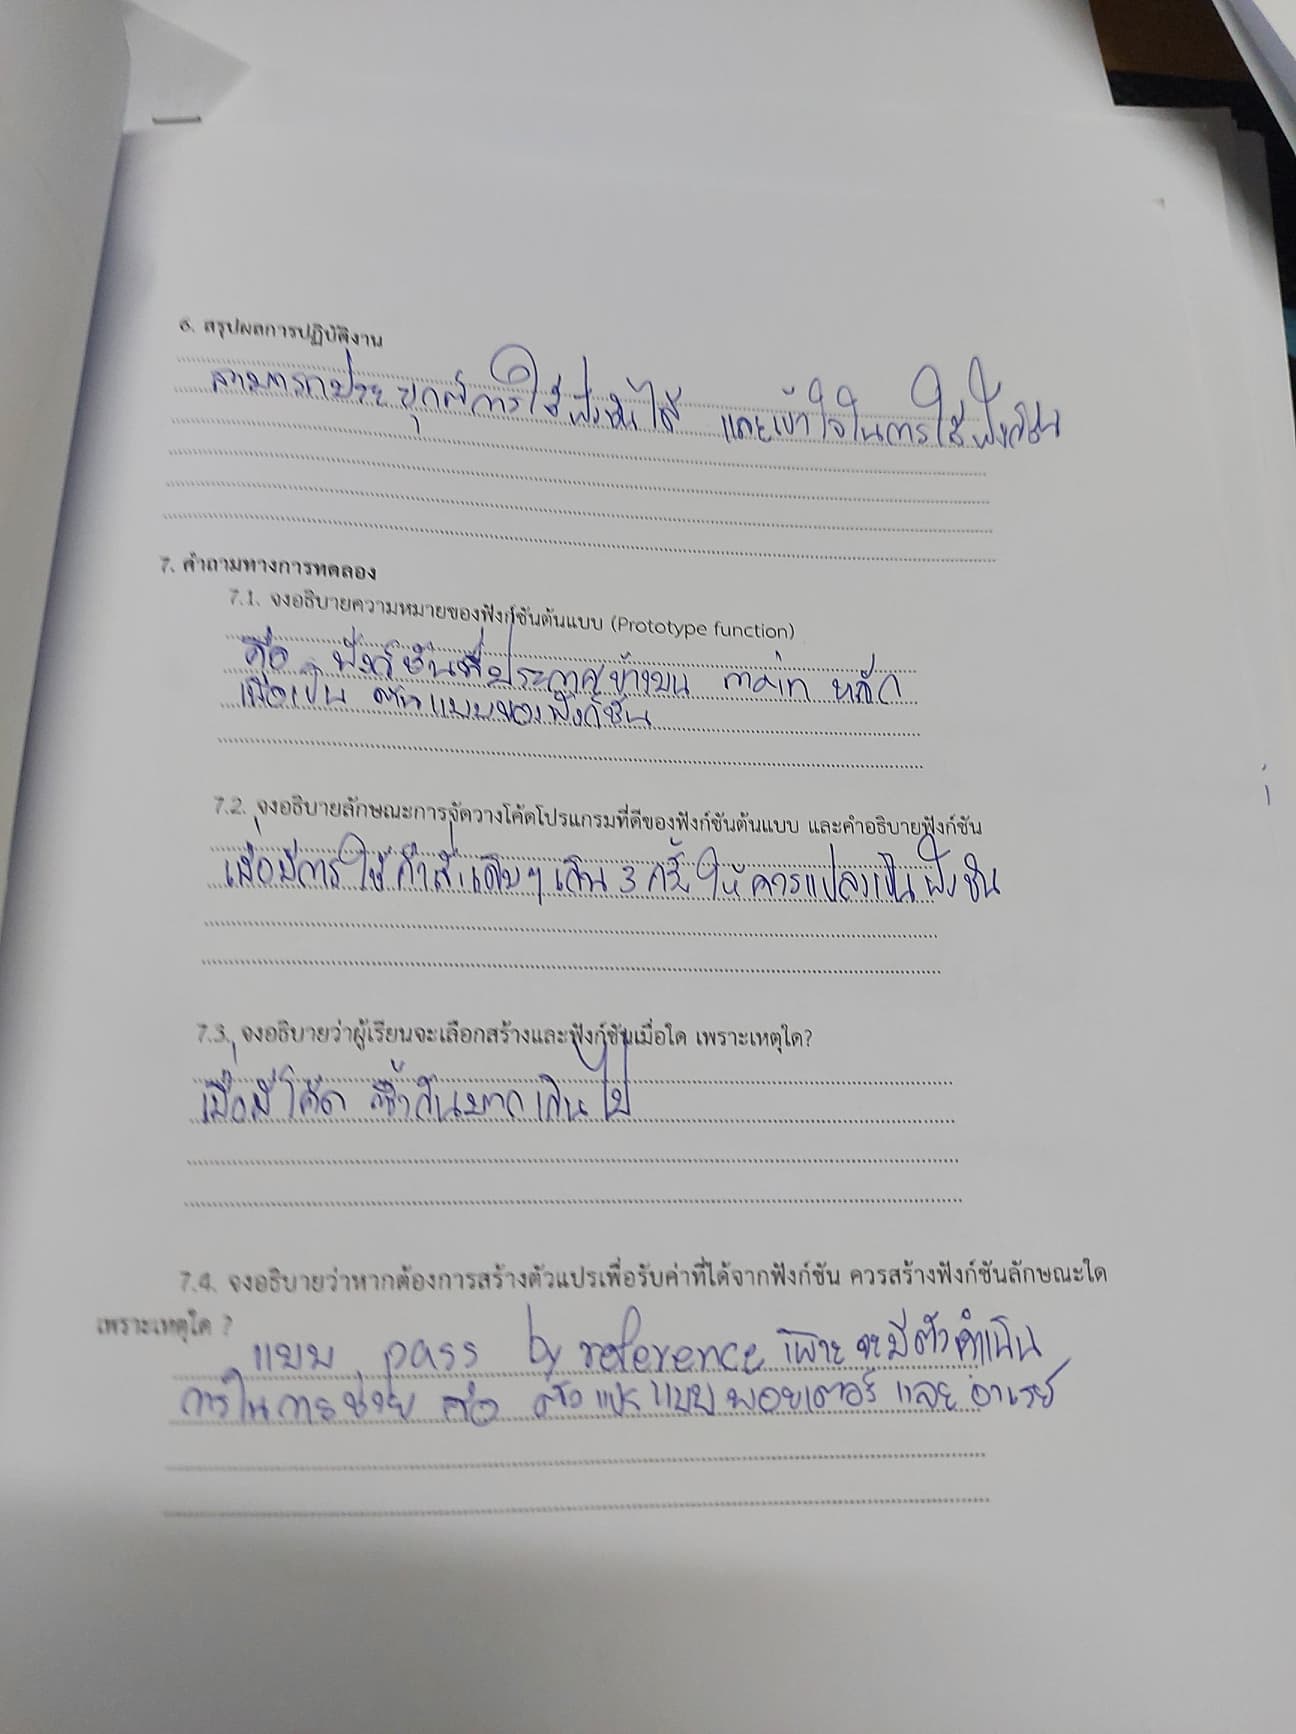 6. สรุปผลการปฏิบัติงาน
สามารถประยุกต์การใช้ฟังชันได้ และเข้าใจในการใช้ฟังก์ชัน
7. คำถามทางการทดลอง
7.1. จงอธิบายความหมายของฟังก์ชันต้นแบบ (Prototype function)
คือ ฟังก์ชันที่ประกาศข้างบน main หลัก
เพื่อเป็น ต้นแบบของฟังก์ชัน
7.2. จงอธิบายลักษณะการจัดวางโค้ดโปรแกรมที่ดีของฟังก์ชันต้นแบบ และคำอธิบายฟังก์ชัน
เมื่อมีการใช้คำสั่งเดิมๆ เกิน 3 ครั้ง ให้ควรแปลงเป็นฟังชัน
7.3. จงอธิบายว่าผู้เรียนจะเลือกสร้างและฟังก์ชันเมื่อใด เพราะเหตุใด?
เมื่อมีโค้ด ซ้ำกันมากเกินไป
7.4. จงอธิบายว่าหากต้องการสร้างตัวแปรเพื่อรับค่าที่ได้จากฟังก์ชัน ควรสร้างฟังก์ชันลักษณะใด
เพราะเหตุใด ?
แบบ pass by reference เพราะจะมีตัวดำเนิน
การในการช่วย คือ ตัวแปรแบบพอยเตอร์ และ อาเรย์